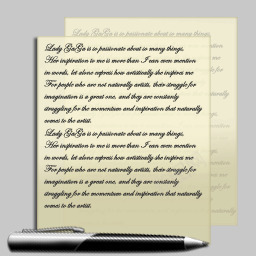 Lady GaGa is so passionate about so many things,
Her inspiration to me is more than I can even mention
in words, let alone express how artistically she inspires me
For people who are not naturally artists, their struggle for
imagination is a great one, and they are constantly
struggling for the momentum and inspiration that naturally
comes to the artist.
Lady GaGa is so passionate about so many things,
Her inspiration to me is more than I can even mention
in words, let alone express how artistically she inspires me
For people who are not naturally artists, their struggle for
imagination is a great one, and they are constantly
struggling for the momentum and inspiration that naturally
comes to the artist.